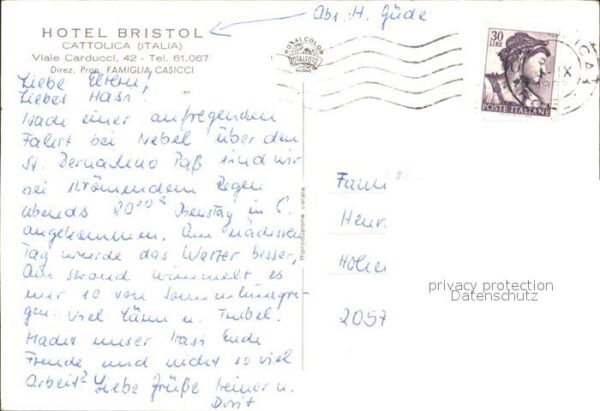 Abs. H. Güde
HOTEL BRISTOL
CATTOLICA (ITALIA)
Viale Carducci, 42 - Tel. 61.067
Direz. Prop. FAMIGLIA CASICCI
Liebe Eltern,
Liebes Hasi!
Nach einer aufregenden
Fahrt bei Nebel über den
St. Bernadino Paß sind wir
bei strömendem Regen
abends 20⁰⁰ Dienstag in C.
angekommen. Am nächsten
Tag wurde das Wetter besser.
Am Strand wimmelt es
nur so von Sonnenhungri-
gen. Viel Lärm u. Trubel.
Macht unser Hasi Euch
Freude und nicht so viel
Arbeit? Liebe Grüße Heiner u.
Dorit
Riproduzione vietata
30
LIRE
POSTE ITALIANE
Fami
Henr.
Höhe
2057
privacy protection
Datenschutz